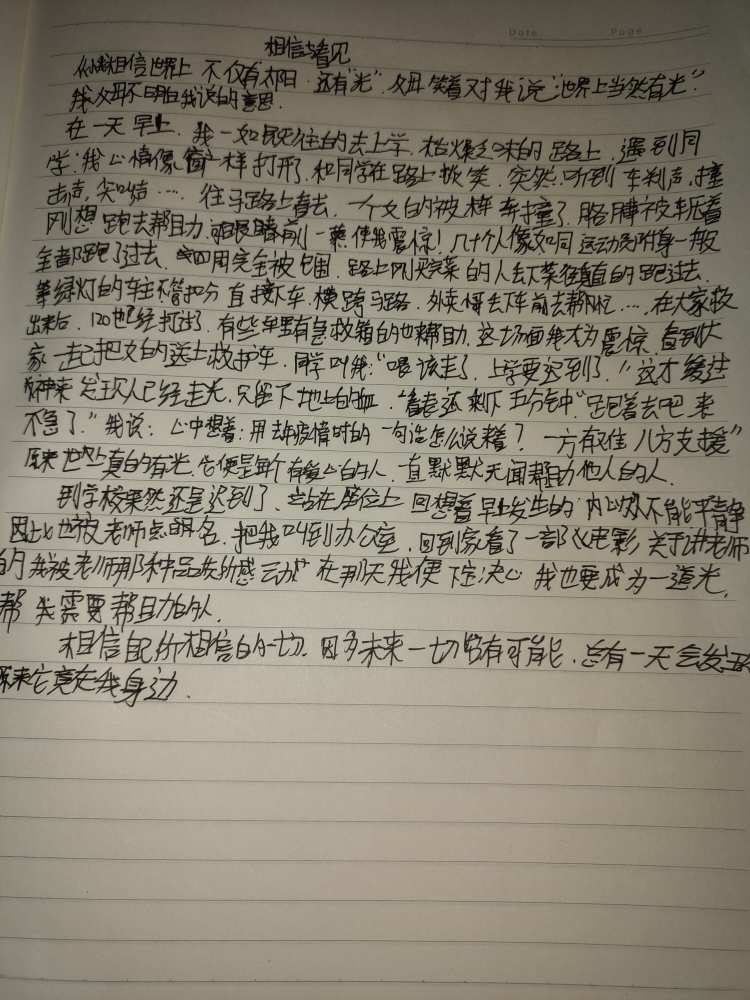 Date Page
相信与看见
从小就相信世界上 不仅有太阳.还有"光".父母笑着对我说"世界上当然有光"
我父母不明白我说的意思.
在一天早上.我一如既往的去上学.枯燥乏味的路上.遇到同
学.我心情像窗户一样打开.和同学在路上 笑.突然.听到车刹声.撞
击声.尖叫声....往马路上看去.一个女的被 车撞了.胳膊被车压着
刚想跑去帮助. 眼睛前一幕使我震惊!几十个人像如同运动员附身一般
全部跑了过去. 四周完全被包围.路上刚买完菜的人丢下菜径直的跑过去.
等绿灯的车主不管扣分直接下车.横跨马路.外卖哥丢下车前去帮忙....在大家救
出来后.120也已经打过了.有些车里有急救箱的也来帮助.这场面我大为震惊.看到大
家一起把女的送上救护车.同学叫我:"喂该走了.上学要迟到了."这才缓过
神来 发现人已经走光.只留下地上的血."看表还剩下五分钟"."跑着去吧.来
不急了."我说:心中想着:用去年疫情时的一句话怎么说来着?一方有难八方支援"
原来世上真的有光.它便是每个有爱心的人.一直默默无闻帮助他人的人.
到学校果然还是迟到了.站在座位上回想着早上发生的 内心久不能平静
因此也被老师点名.把我叫到办公室.回到家看了一部 电影.关于讲老师
的我被老师那种品质所感动 在那天我便下定决心 我也要成为一道光.
帮我需要帮助的人.
相信自己所相信的一切.因为未来一切皆有可能.总有一天会发现
原来它竟在我身边.